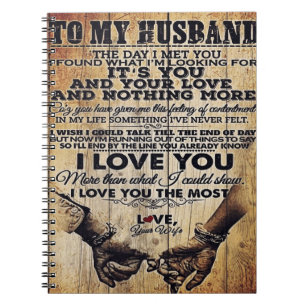 TO MY HUSBAND
THE DAY I MET YOU
FOUND WHAT I'M LOOKING FOR
IT'S YOU
AND YOUR LOVE
AND NOTHING MORE
you have given me this feeling of contentment
IN MY LIFE SOMETHING I'VE NEVER FELT.
I WISH I COULD TALK TILL THE END OF DAY
BUT NOW I'M RUNNING OUT OF THINGS TO SAY
SO I'LL END BY THE LINE YOU ALREADY KNOW
I LOVE YOU
More than what I could show.
I LOVE YOU THE MOST
LOVE,
Your Wife